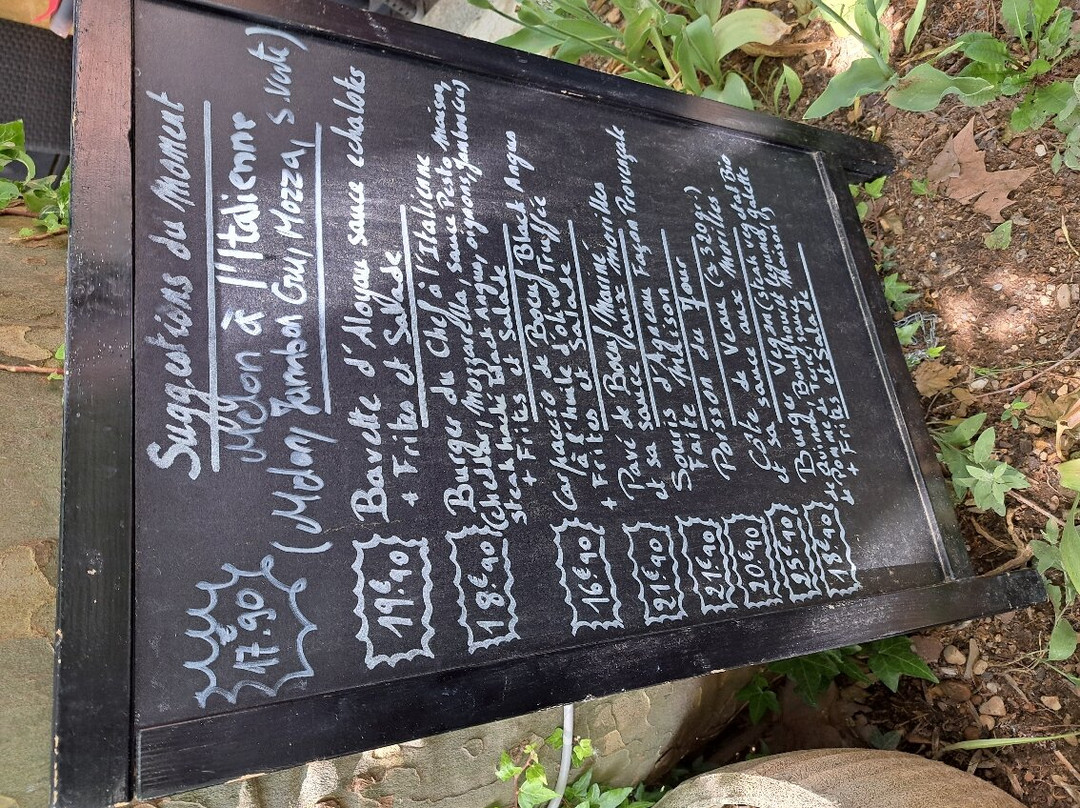 Suggestions du Moment
17.€90 Melon à l'Italienne
(Melon, Jambon Cru, Mozza, s.verte)
19.€90 Bavette d'Aloyau sauce echalote
+ Frites et Salade
18.€90 Burger du Chef à l'Italienne
(cheddar, mozzarella, sauce Pesto Maison,
steak haché Black Angus, oignons, Jambon cru)
+ Frites et Salade
16.€90 Carpaccio de Boeuf Black Angus
à l'huile d'olive Truffée
+ Frites et Salade
21.€90 Pavé de Boeuf Mariné
et sa sauce aux Morilles
21.€90 Souris d'Agneau Façon Provençale
Faite Maison
20.€90 Poisson du Jour
25.€90 Côte de Veau (≈ 320gr)
et sa sauce aux Morilles
18.€90 Burger Vegan (steak végétal Bio
de Terre et galette
+ Frites et Salade